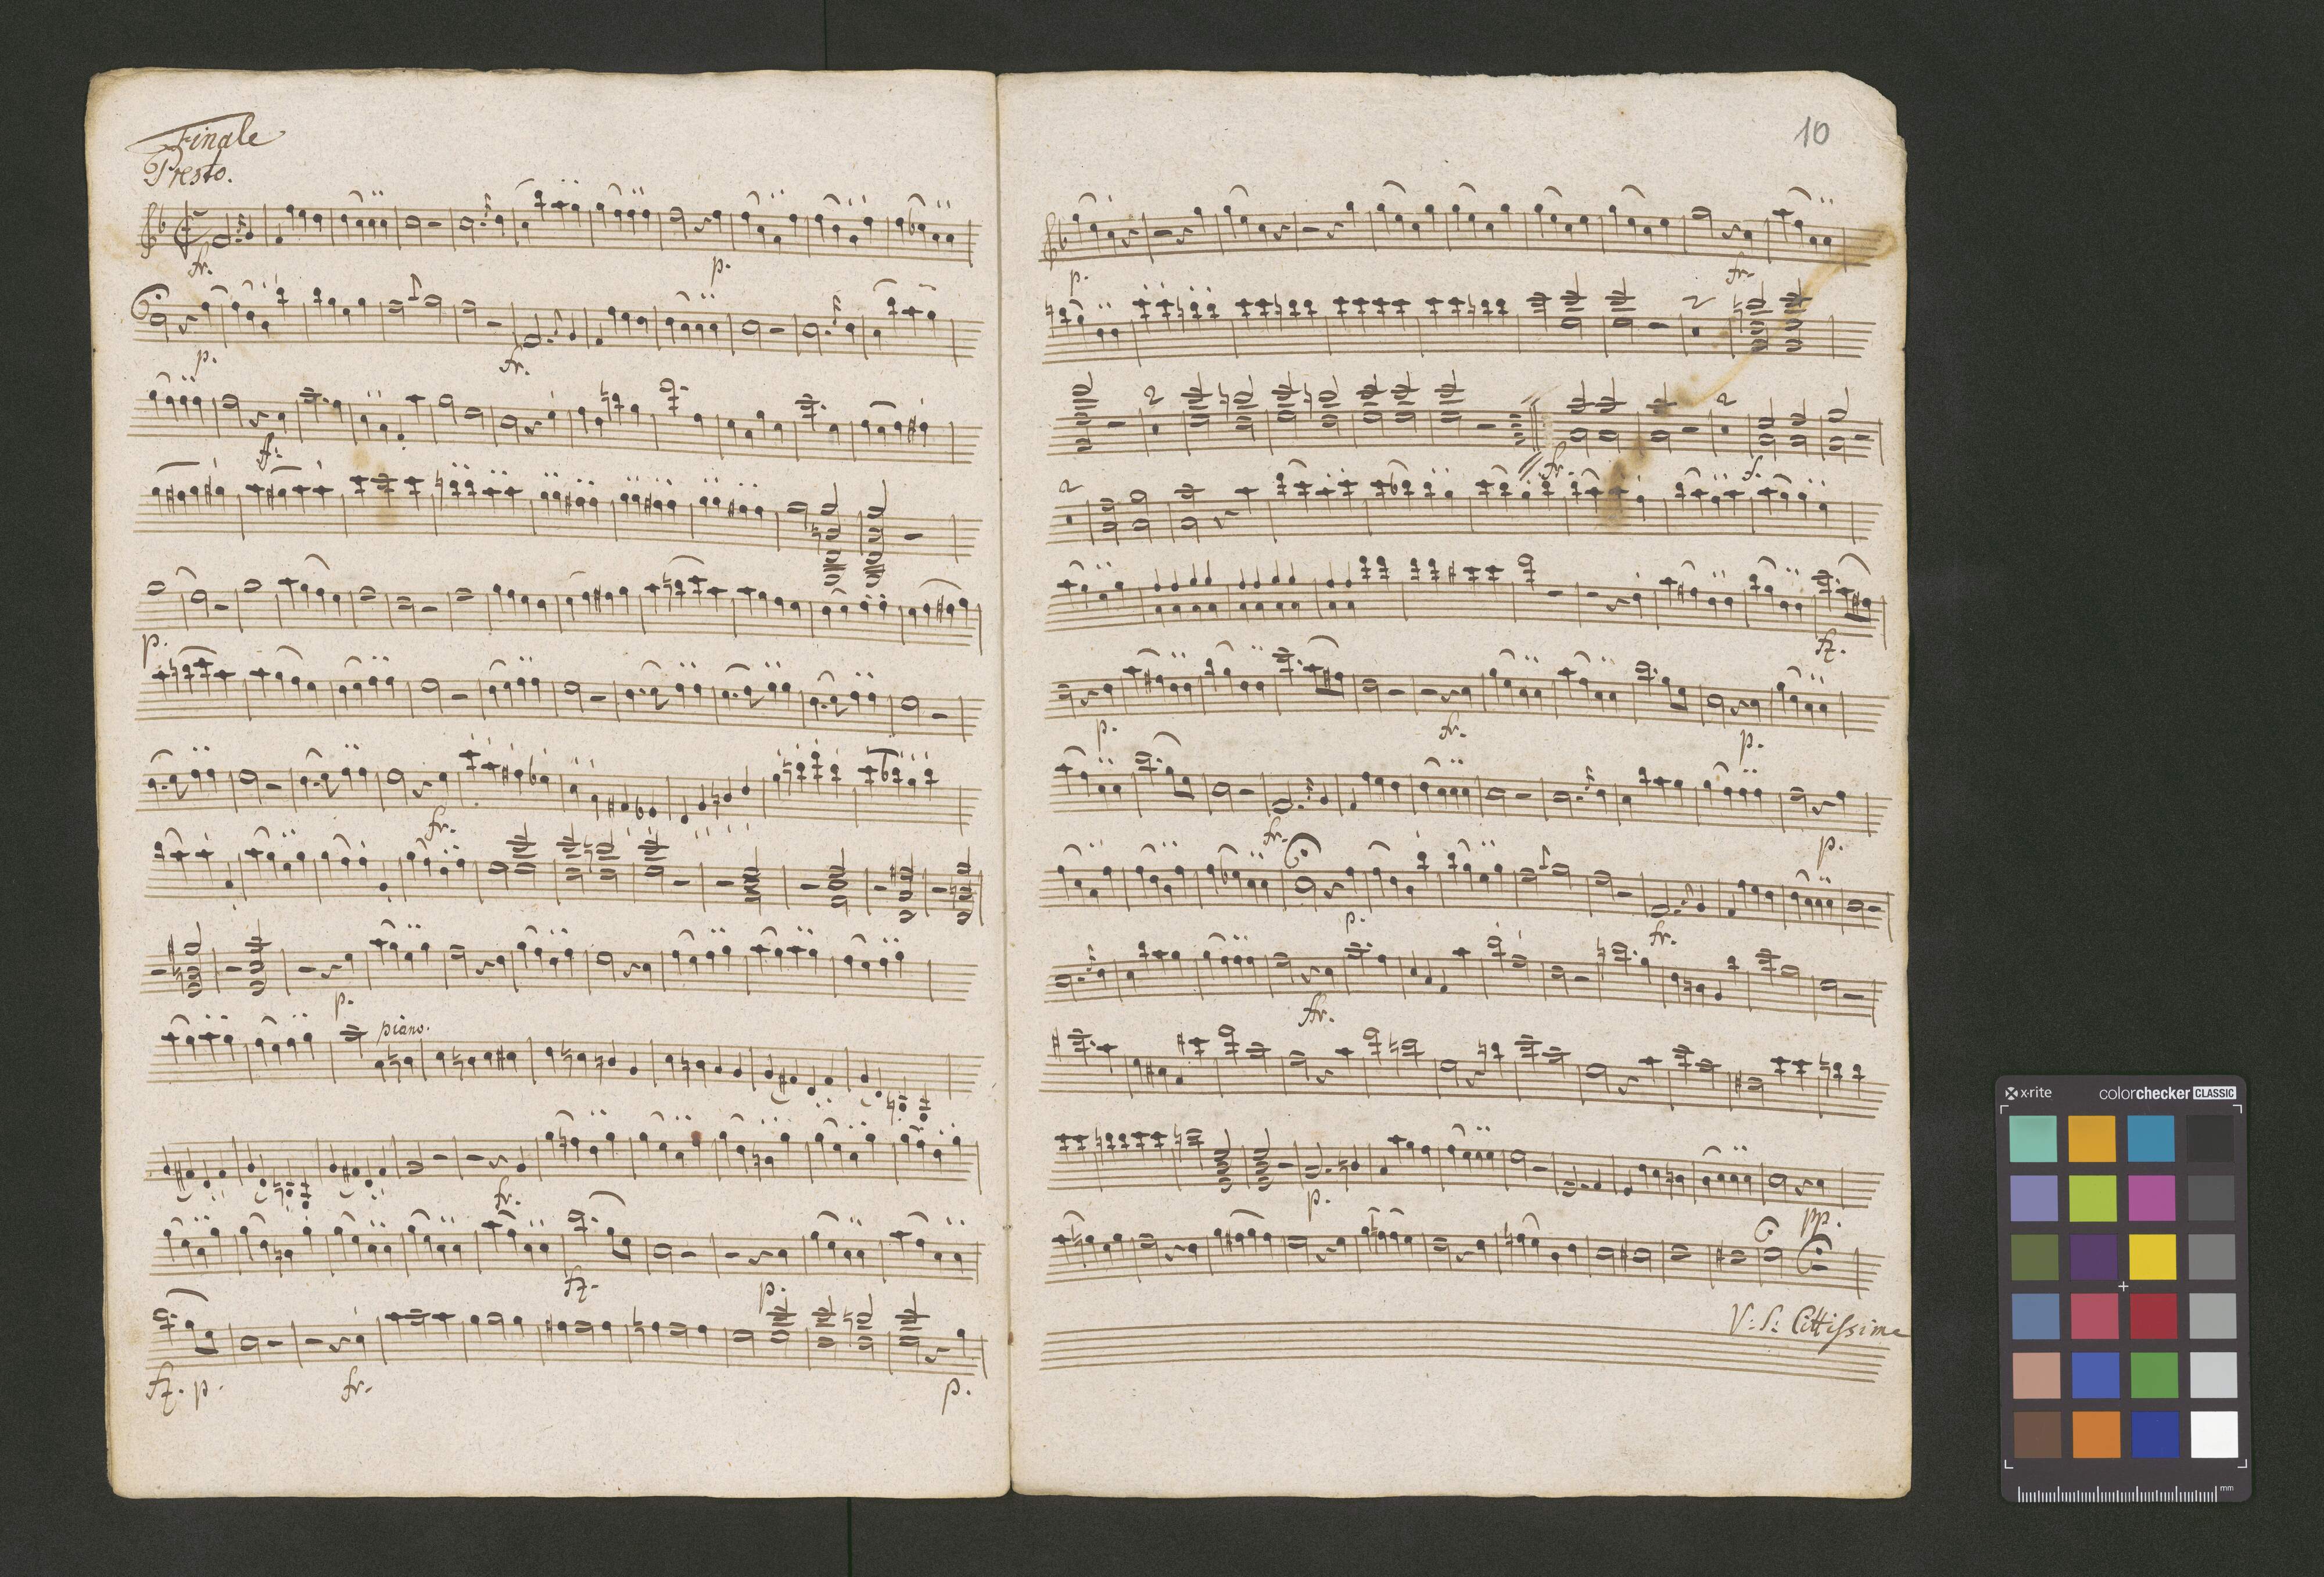 Finale
Presto.
fr.
p.
p.
fr.
f:
p.
fr.
p.
piano.
fr.
fz.
p.
fz. p.
fr.
p.
10
p.
fr.
2
2
2
fr.
2
f.
fz.
p.
fr.
p.
fr.
p.
p.
fr.
ffr.
p.
pp.
V: S: Cittissime
x·rite
colorchecker CLASSIC
mm